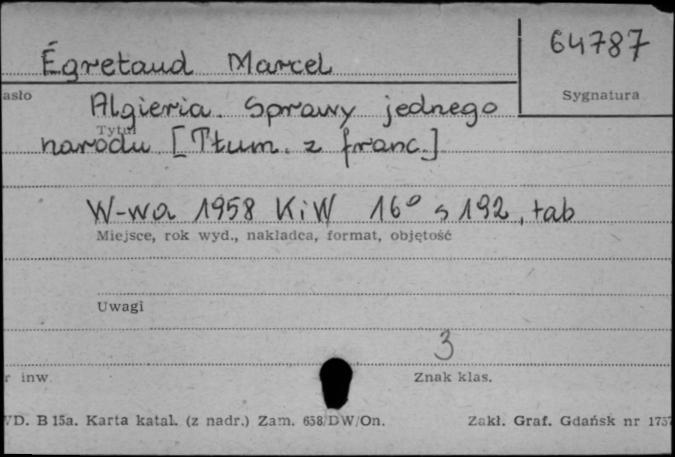 64787
Égretaud Marcel
asło
Sygnatura
Algieria. Sprawy jednego
Tytuł
narodu [Tłum. z franc.]
W-wa 1958 KiW 16° s 192, tab
Miejsce, rok wyd., nakładca, format, objętość
Uwagi
3
r inw
Znak klas.
VD. B 15a. Karta katal. (z nadr.) Zam. 658/DW/On. Zakł. Graf. Gdańsk nr 1757